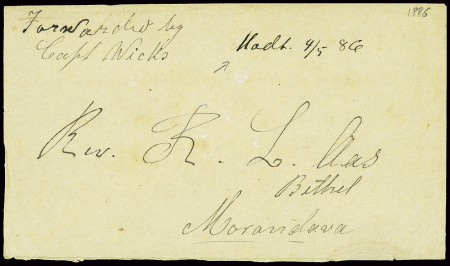 1886
Forwarded by
Capt Wicks
Modt. 4/5 86
Rev. K. L. Aas
Bethel
Morondava